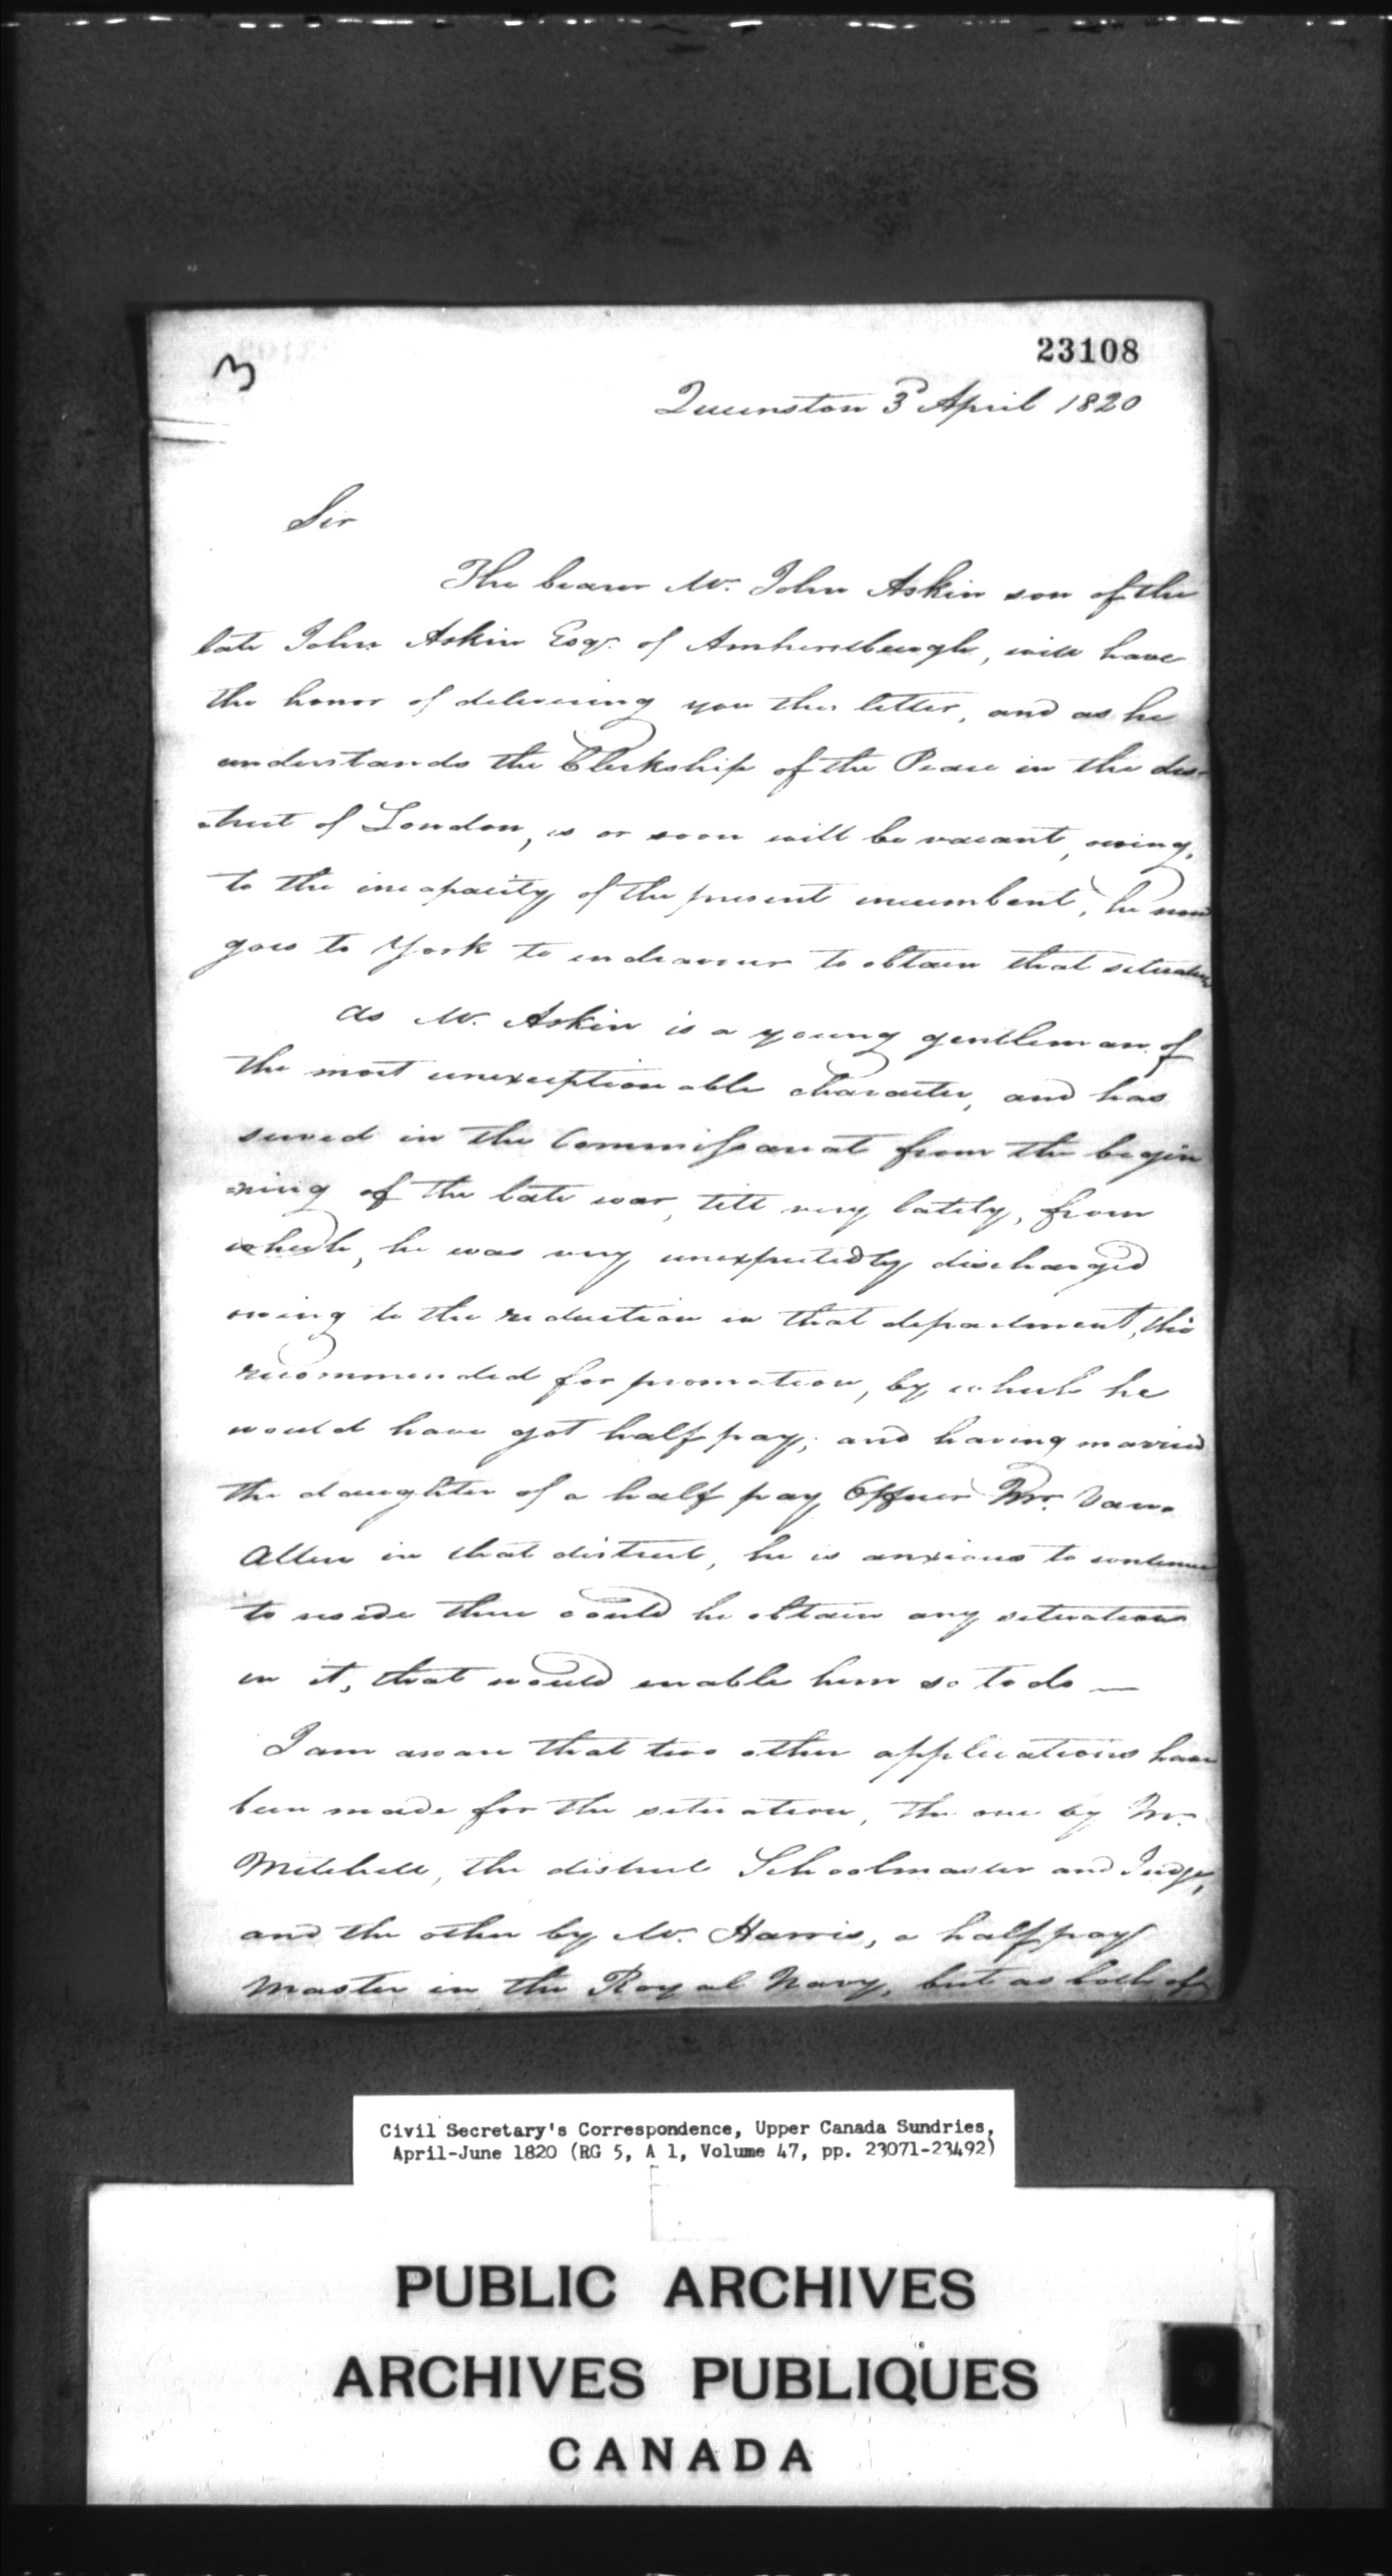 3
23108
Queenston 3d April 1820
Sir
The bearer Mr. John Askin son of the
late John Askin Esqr. of Amherstburgh, will have
the honor of delivering you this letter, and as he
understands the Clerkship of the Peace in the dis-
-trict of London, is or soon will be vacant, owing,
to the incapacity of the present incumbent, he now
goes to York to endeavour to obtain that situation
As Mr. Askin is a young gentleman of
the most unexceptionable character, and has
served in the Commissariat from the begin
=ning of the late war, till very lately, from
which, he was very unexpectedly discharged
owing to the reduction in that department, tho
recommended for promotion, by which he
would have got half pay; and having married
the daughter of a half pay Officer Mr. Van.
Allen in that district, he is anxious to continue
to reside there could he obtain any situation
in it, that would enable him so to do —
I am aware that two other applications have
been made for the situation, the one by Mr.
Mitchell, the district Schoolmaster and Judge,
and the other by Mr. Harris, a half pay
Master in the Royal Navy, but as both of
Civil Secretary's Correspondence, Upper Canada Sundries,
April-June 1820 (RG 5, A 1, Volume 47, pp. 23071-23492)
PUBLIC ARCHIVES
ARCHIVES PUBLIQUES
CANADA